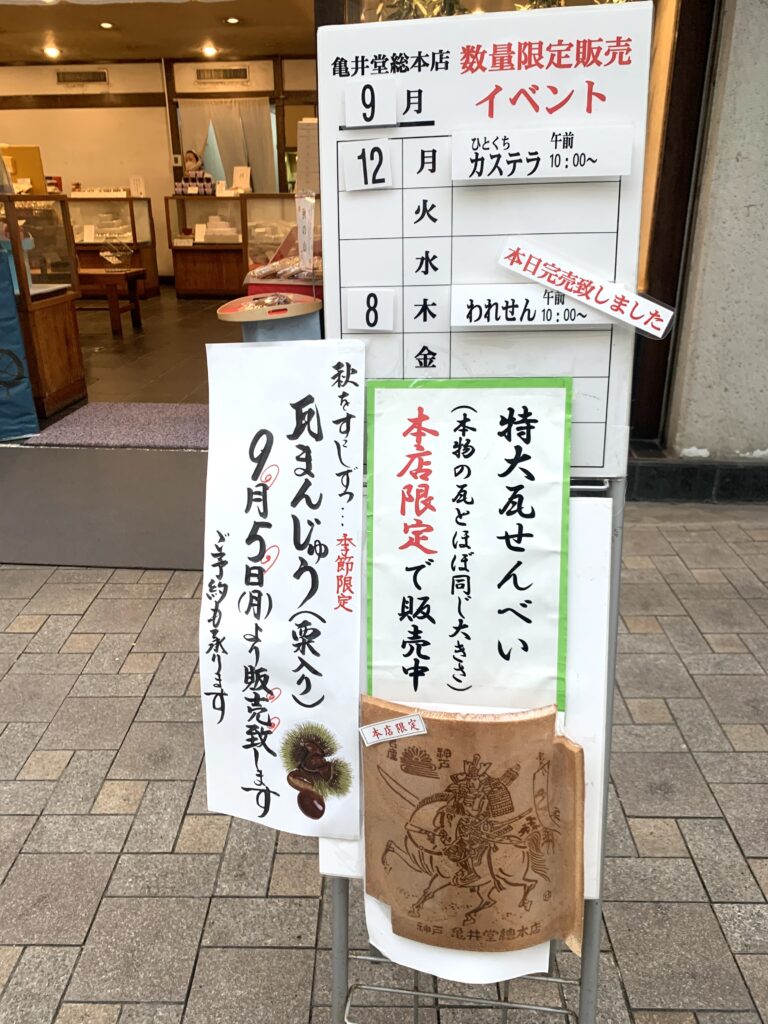 亀井堂総本店
数量限定販売
イベント
9月
12 月 ひとくち カステラ 午前 10:00〜
火
水
8 木 われせん 午前 10:00〜
本日完売致しました
金
特大瓦せんべい
(本物の瓦とほぼ同じ大きさ)
本店限定で販売中
秋をすこしずつ… 季節限定
瓦まんじゅう(栗入り)
9月5日(月)より販売致します
ご予約も承ります
本店限定
神戸
神戸 亀井堂總本店